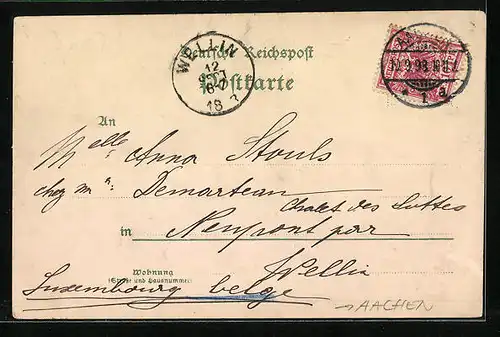 Deutsche Reichspost
Postkarte
WELLIN
12
SEPT
18
An
Melle Anna Stouls
chez Mr: Demarteau
Chalet des Grottes
in Neupont par
Wellin
Wohnung
(Straße und Hausnummer)
Luxembourg belge
→AACHEN